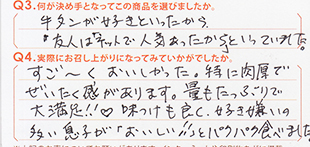 Q3.何が決め手となってこの商品を選びましたか。
牛タンが好きといったから
"友人は「ネットで人気あったから」といっていました。
Q4.実際にお召し上がりになってみていかがでしたか。
すご〜くおいしかった。特に肉厚で
ぜいたく感があります。量もたっぷりで
大満足!!♡味つけも良く、好き嫌いの
多い息子が「おいしい!!」とパクパク食べました